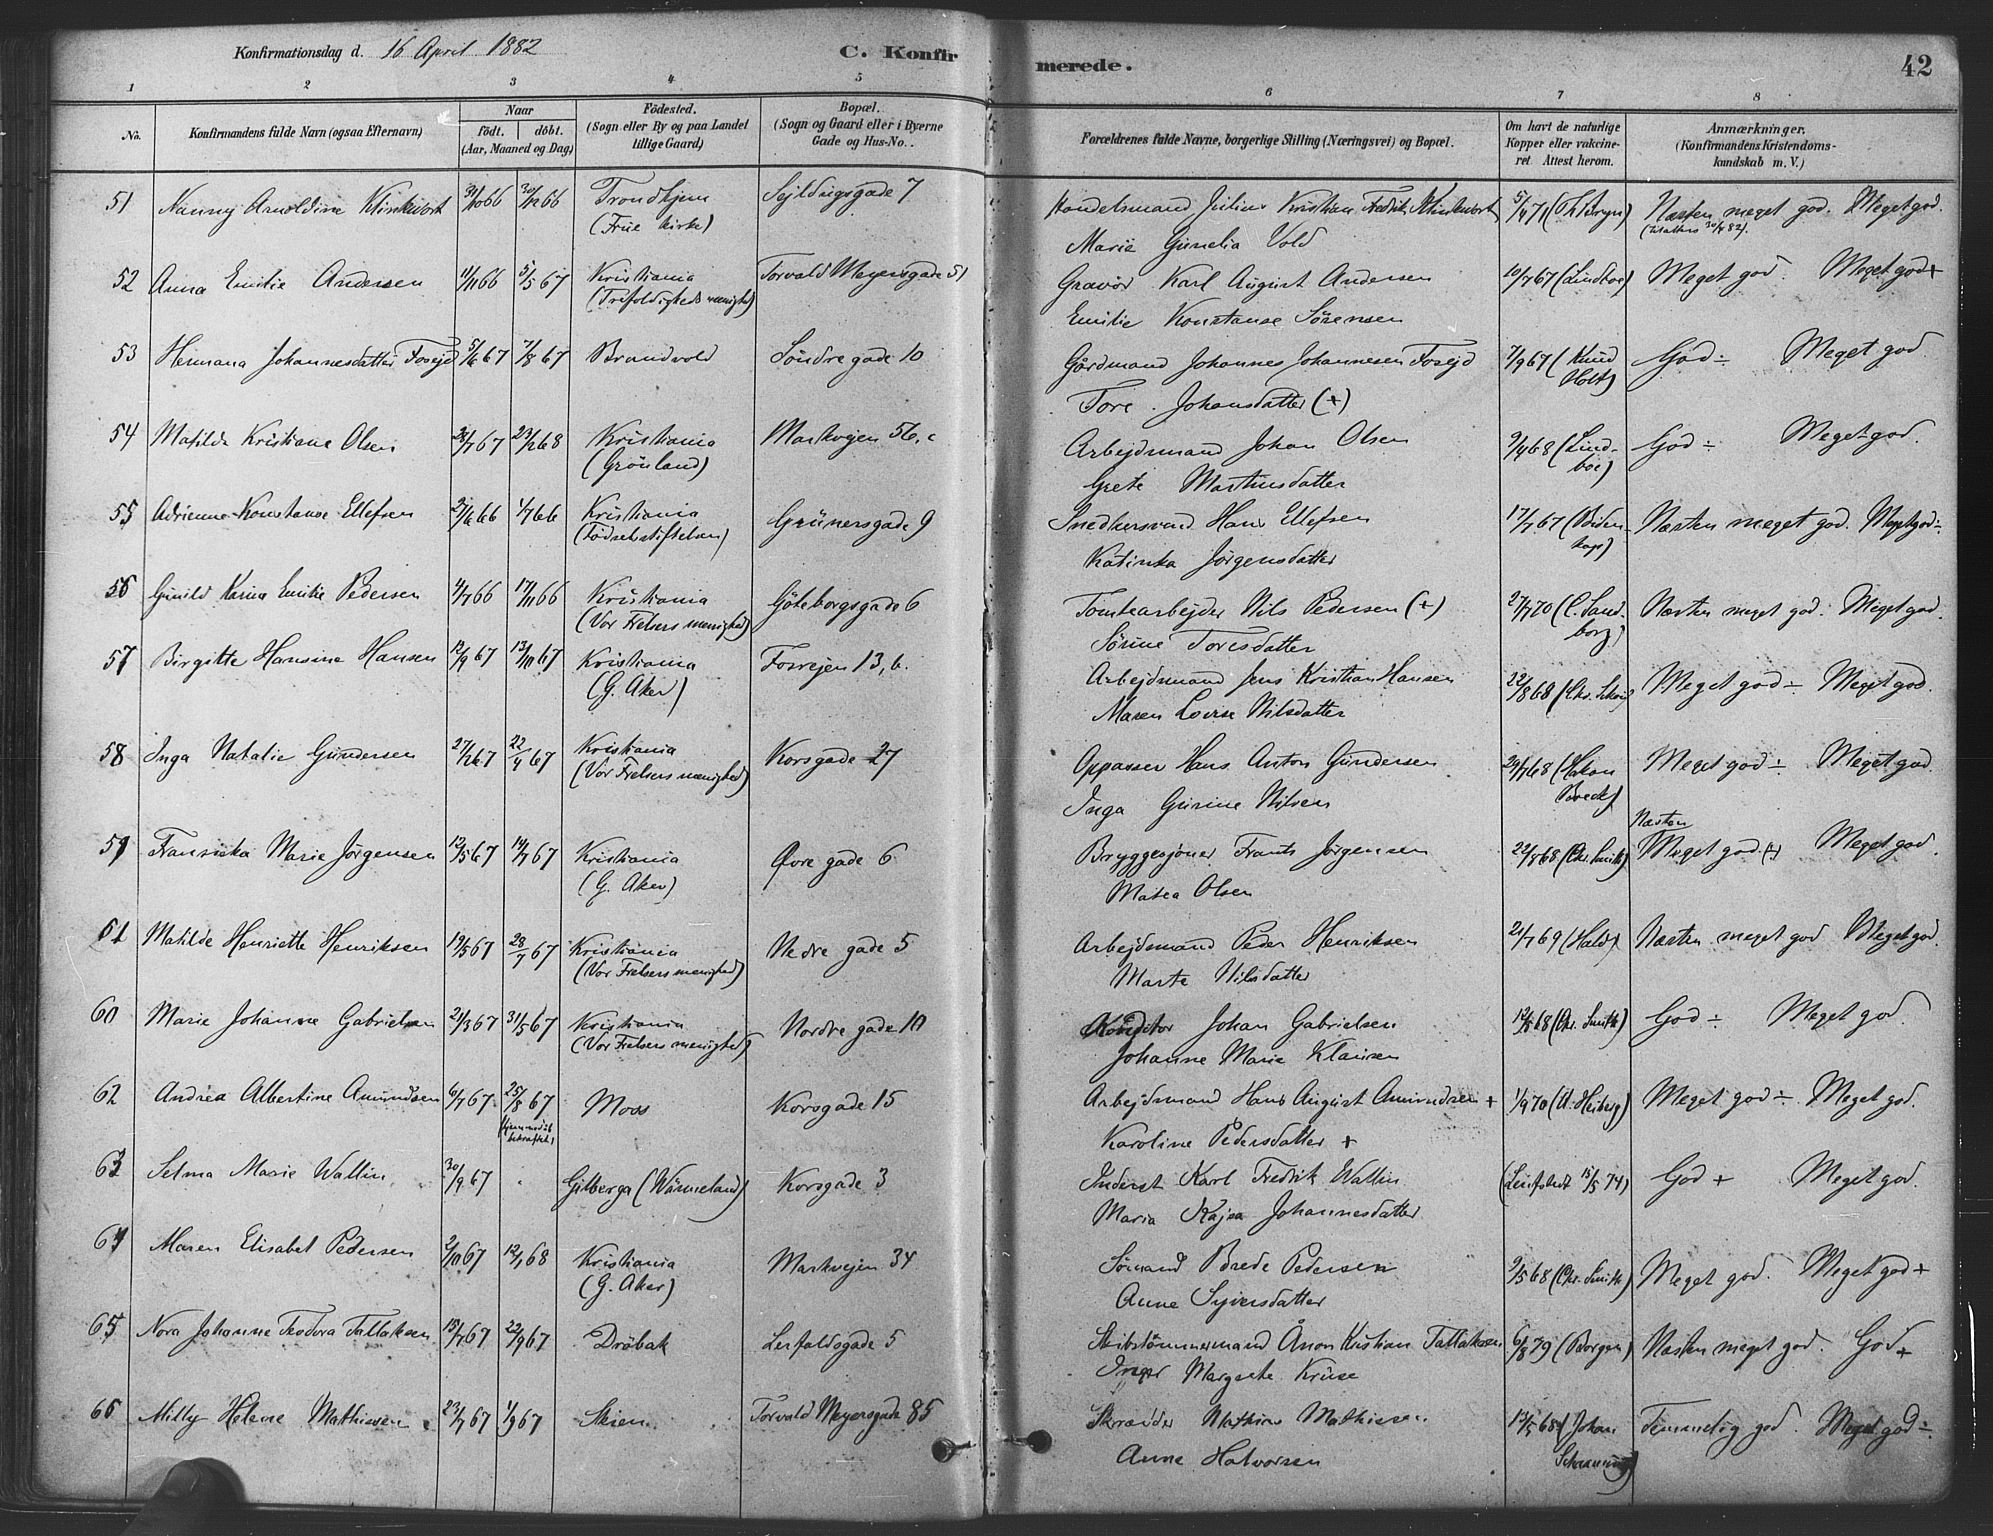 Konfirmationsdag d. 16 April 1882 C. Konfirmerede. 42
1 2 3 4 5 6 7 8
No. Konfirmandens fulde Navn (ogsaa Efternavn) Naar födt. döbt. (Aar, Maaned og Dag) Födested. (Sogn eller By og paa Landet tillige Gaard) Bopæl. (Sogn og Gaard eller i Byerne Gade og Hus-No.. Forældrenes fulde Navne, borgerlige Stilling (Næringsvei) og Bopæl. Om havt de naturlige Kopper eller vakcineret. Attest herom. Anmærkninger. (Konfirmandens Kristendomskundskab m. V.)
51 Nanny Arnoldine Klinkevort 31/10 66 30/12 66 Trondhjem Sejldugsgade 7 Handelsmand Julius Kristian Fredrik Klinkevort 5/4 71 Næsten meget god. Meget god.
(Frue kirke) Marie Gunelia Vold
52 Anna Emilie Andersen 11/11 66 5/5 67 Kristiania Torvald Meyersgade 51 Gravör Karl August Andersen 10/7 67 (Lindboe) Meget god. Meget god +
(Trefoldigheds menighed) Emilie Konstanse Sörensen
53 Hermana Johannesdatter Fosejd 5/6 67 7/8 67 Brandvold Söndre gade 10 Gårdmand Johannes Johannesen Fosejd 7/9 67 (Knud Holt) God ÷ Meget god
Tore Johansdatter (+)
54 Matilde Kristiane Olsen 23/2 68 Kristiania Markvejen 56, c Arbejdsmand Johan Olsen 9/4 68 (Lindboe) God ÷ Meget god.
(Grönland) Grete Martinsdatter
55 Adrienne Konstanse Ellefsen 1/7 66 Kristiania Grünersgade 9 Snedkersvend Hans Ellefsen 17/7 67 Næsten meget god. Meget god ÷
(Födselsstiftelsen) Katinka Jörgensdatter
56 Gunild Karine Emilie Pedersen 4/7 66 17/11 66 Kristiania Göteborgsgade 6 Tomtearbejder Nils Pedersen (+) 27/7 70 (C. Sandborg) Næsten meget god. Meget god
(Vor Frelsers menighed) Sörine Toresdatter
57 Birgitte Hansine Hansen 12/9 67 13/10 67 Kristiania Fosvejen 13, b. Arbejdsmand Jens Kristian Hansen 22/8 68 Meget god ÷ Meget god.
(G. Aker) Maren Lovise Nilsdatter
58 Inga Natalie Gundersen 27/1 67 22/4 67 Kristiania Korsgade 27 Oppasser Hans Anton Gundersen 29/7 68 (Hakon Boeck) Meget god ÷ Meget god
(Vor Frelsers menighed) Inga Gurine Nilsen
59 Fransiska Marie Jörgensen 12/5 67 14/7 67 Kristiania Övre gade 6 Bryggesjouer Frants Jörgensen 22/8 68 (Chr. Smith) Næsten Meget god Meget god.
(G. Aker) Matea Olsen
61 Matilde Henriette Henriksen 19/5 67 28/7 67 Kristiania Nedre gade 5 Arbejdsmand Peder Henriksen 21/7 69 (Hald) Næsten meget god Meget god.
(Vor Frelsers menighed) Marte Nilsdatter
60 Marie Johanne Gabrielsen 21/3 67 31/5 67 Kristiania Nordre gade 10 Johan Gabrielsen 12/8 68 (Chr. Smith) God ÷ Meget god.
(Vor Frelsers menighed) Johanne Marie Klausen
62 Andrea Albertine Amundsen 6/7 67 25/8 67 Moss Korsgade 15 Arbejdsmand Hans August Amundsen + 1/9 70 (A. Heiberg) Meget god ÷ Meget god.
(hjemmedåb bekræftet) Karoline Pedersdatter +
63 Selma Marie Wallin 30/9 67 Gilberga (Wärmeland) Korsgade 3 Inderst Karl Fredrik Wallin 15/5 74) God + Meget god.
Maria Kajsa Johannesdatter
64 Maren Elisabet Pedersen 2/10 67 12/1 68 Kristiania Markvejen 34 Sömand Brede Pedersen 9/5 68 (Chr. Smith) Meget god. Meget god +
(G. Aker) Anne Syversdatter
65 Nora Johanne Teodora Tallaksen 15/7 67 22/9 67 Dröbak Leifaldsgade 5 Skibstömmermand Ånon Kristian Tallaksen 6/8 79 (Borgen) Næsten meget god. God +
Inger Margrete Kruse
66 Milly Helene Mathisen 23/7 67 1/9 67 Skien Torvald Meyersgade 85 Skræder Mathias Mathissen 13/5 68 (Johan Temmelig god. Meget god ÷
Anne Halvorsen